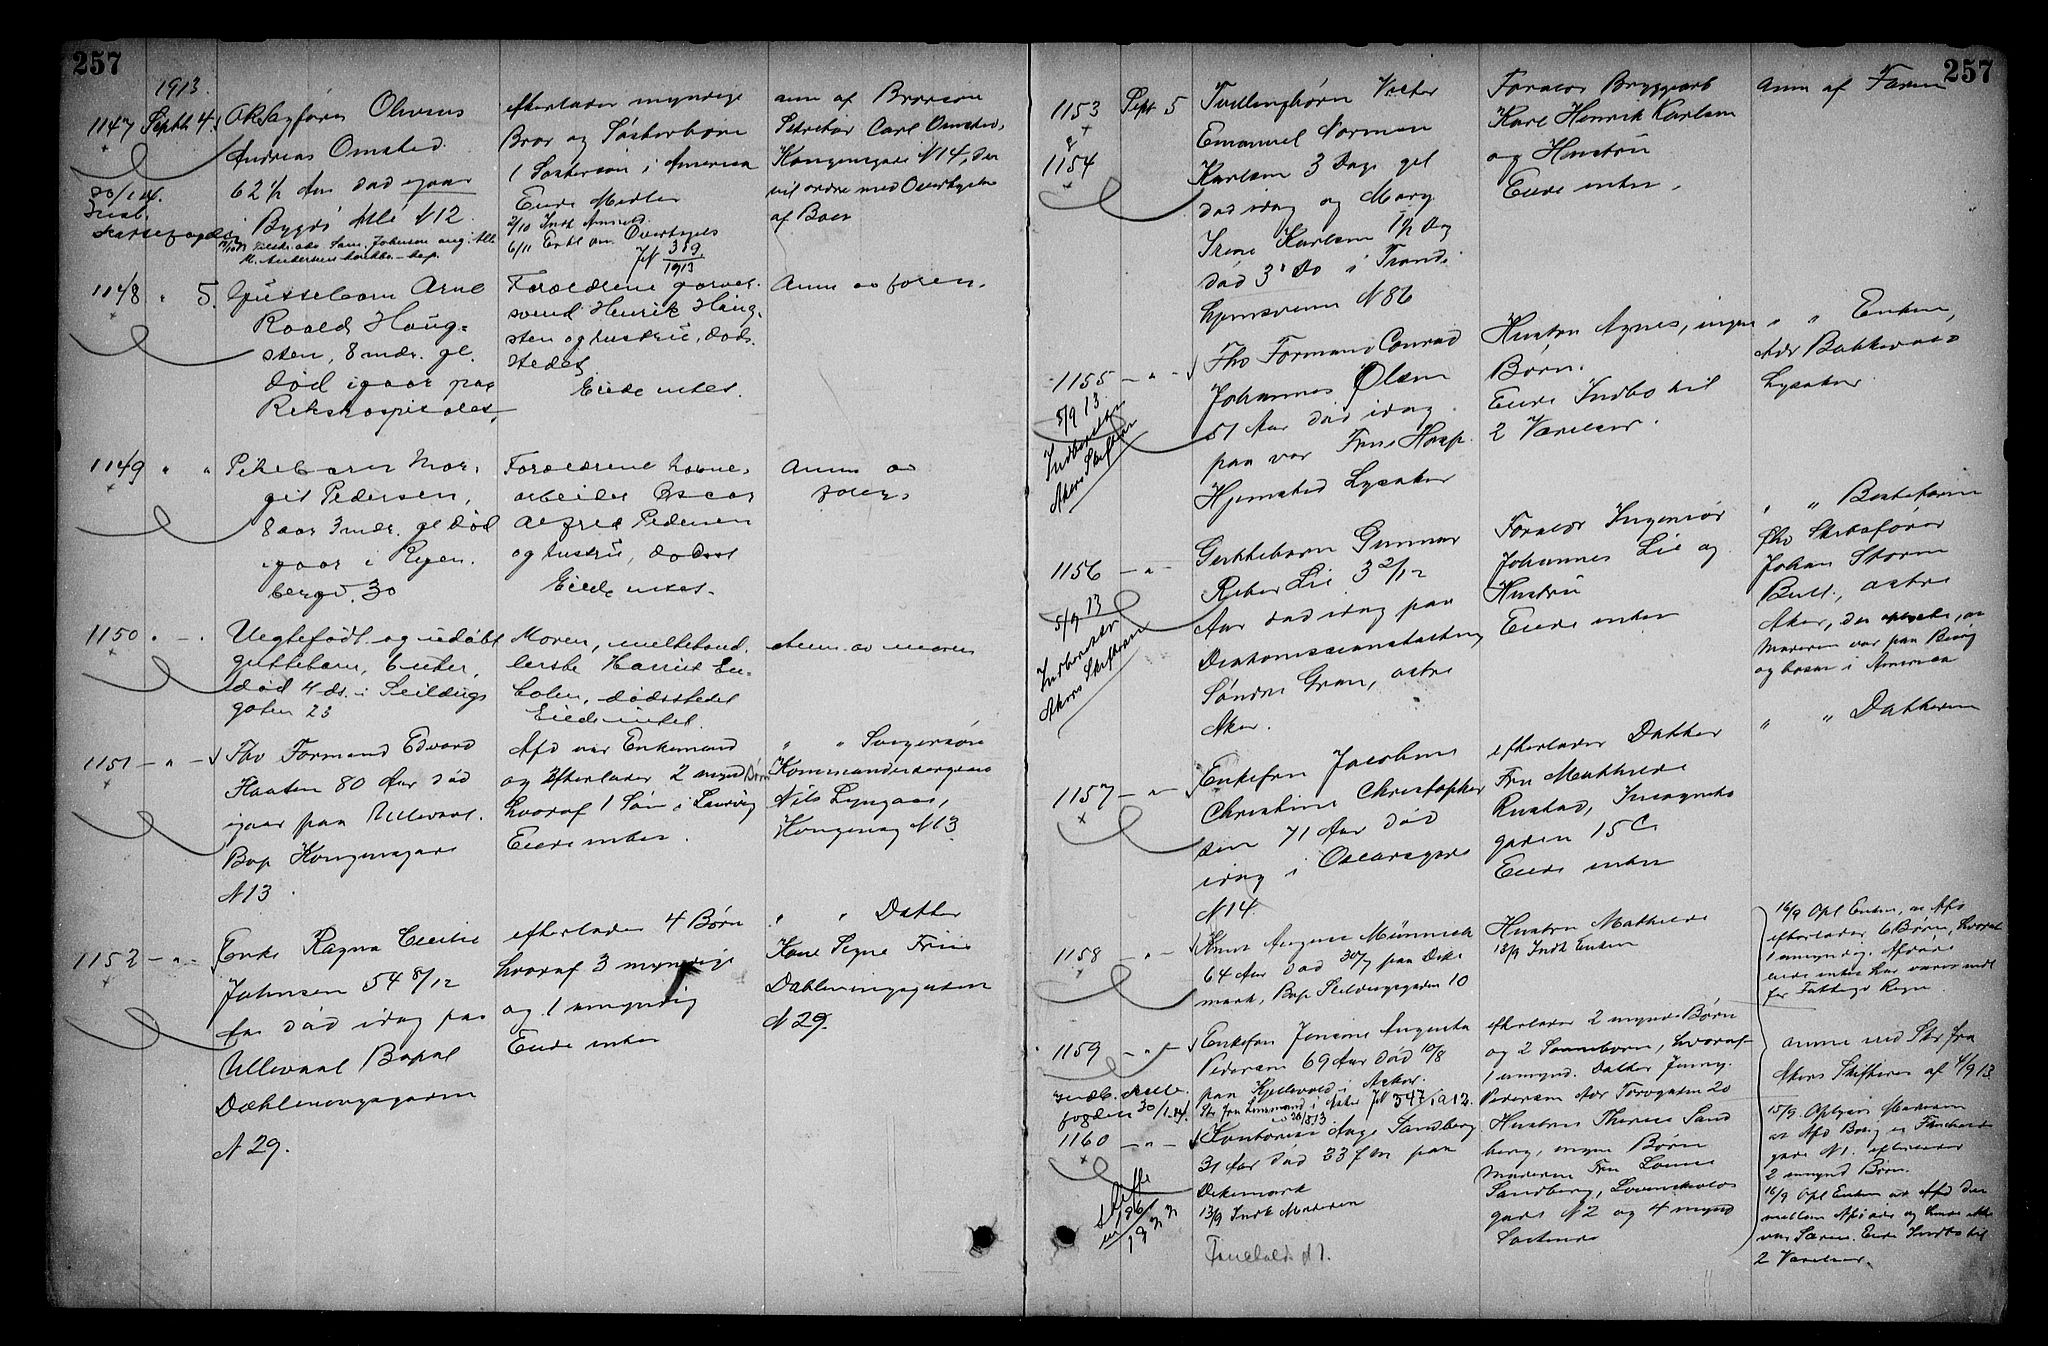 257
1913.
1147 Septbr 4.
OR Sagfører Olivius
Andreas Omsted
62 1/2 Aar død igaar
i Bygdø Allé N 12
30/1 14.
efterlader myndige
Bror og Søsterbørn
1 Søstersøn i Amerika
Eiede Midler
2/10 Indk Anmeld.
6/11
JN 319
1913
anm af Brorsøn
Sekretær Carl Omsted,
Kongensgade N 14, der
vil ordne med Overtagelse
af Boet
1148 " 5.
Guttebarn Arne
Roald Haug-
sten, 8 mdr. gl.
død igaar paa
Rikshospitalet,
Forældrene garver-
svend Henrik Haug-
sten og hustru, døds-
stedet
Eiede intet.
Anm av faren.
1149 " "
Pikebarn Mar-
git Pedersen,
8 aar 3 mdr. gl død
igaar i Regn-
bergv. 30
Forældrene havne-
arbeider Oscar
Alfred Pedersen
og hustru, dødsst
Eiede intet.
Anm av
faren.
1150 " - "
Uegtefødt og udøbt
guttebarn,
død 4 ds. i Seildugs
gaten 23
Moren,
Harriet En-
holm, dødsstedet
Eiede intet.
Anm av moren
1151 - " -
Fhv Formand Edvard
Haaten 80 Aar død
igaar paa Ullevaal.
Bop Kongensgade
N 13.
Afd var Enkemand
og efterlader 2 mynd Børn
hvoraf 1 Søn i Laurvig
Eiede intet.
" " Svigersøn
Kommandersergeant
Nils Lyngaas,
Kongensg N 13
1152 - " -
Enke Ragna Cecilie
Johnsen 54 8/12
Aar død idag paa
Ullevaal Bopæl
Dæhlenengsgaden
N 29.
efterlader 4 Børn
hvoraf 3 myndige
og 1 umyndig
Eiede intet
" " Datter
Kone Signe Friis
Dahleningsgaden
N 29.
257
1153 Sept 5
&
1154
Tvillingbørn Victor
Emanuel Norman
Karlsen 3 Dage gl
død idag og Mary
Irene Karlsen 1 1/2 Dag
død 3' Do i Trond-
hjemsveien N 86
Forældr Bryggearb
Karl Henrik Karlsen
og Hustru
Eiede intet.
Anm af Faren
1155 - " -
5/9 13.
Indberetn
Akers Skifteret
Fhv Formand Conrad
Johannes Olsen
51 Aar død idag
paa vor Frue Hosp.
Hjemsted Lysaker
Hustru Agnes, ingen
Børn.
Eiede Indbo til
2 Værelser.
" " Enken,
Adr Bakkeveien
Lysaker
1156 - " -
5/9 13
Indberetn
Akers Skifteret
Guttebarn Gunnar
Reber Lie 3 2/12
Aar død idag paa
Diakonisseanstalten
Søndre Gran, østre
Aker.
Forældr Ingeniør
Johannes Lie og
Hustru
Eiede intet
" " Bestefaren
Fhv Skibsfører
Johan Storm
Bull, østre
Aker, der oplyste, at
Moderen var paa Besøg
og bosat i Amerika
1157 - " -
Enkefru Jacobine
Christine Christopher
sen 71 Aar død
idag i Oscarsgade
N 14.
efterlader Datter
Fru Mathilde
Rustad, Incognito
gaden 15 C
Eiede intet
" " Datteren
1158 - " -
Knut August Münnich
64 Aar død 30/7 paa Deke
mark, Bop Seildugsgaden 10
Hustru Mathilde
18/9 Indk Enken
16/9 Opl Enken, at Afd
efterlader 6 Børn, hvoraf
1 umyndig. Afdøde
eiede intet har været indl
for Fattiges Regn
1159 - " -
30/1 14.
Enkefru Jensine Augusta
Pedersen 69 Aar død 10/8
paa Kjellevold i Asker.
JN 547 1912.
efterlader 2 mynd Børn
og 2 Sønnebørn, hvoraf
1 umynd. Datter Jenny
Pedersen Adr Torvgaten 20
anm ved Skr fra
Akers Skifteret af 4/9 13
1160 - " -
Kontorist Aage Sandberg
31 Aar død 23 f M paa
Dikemark
13/9 Indk Moderen
Hustru Therese Sand
berg, ingen Børn
Moderen Fru Louise
Sandberg, Lovenskiolds
gade N 2 og 4 mynd
Søskende
15/9 Oplyser Moderen
at Afd Bolig er
gade N 1. efterlader
2 umynd Børn.
16/9 Opl Enken at Afd Der
mellem Afdøde og hende
var Særeie. Eiede Indbo til
2 Værelser.